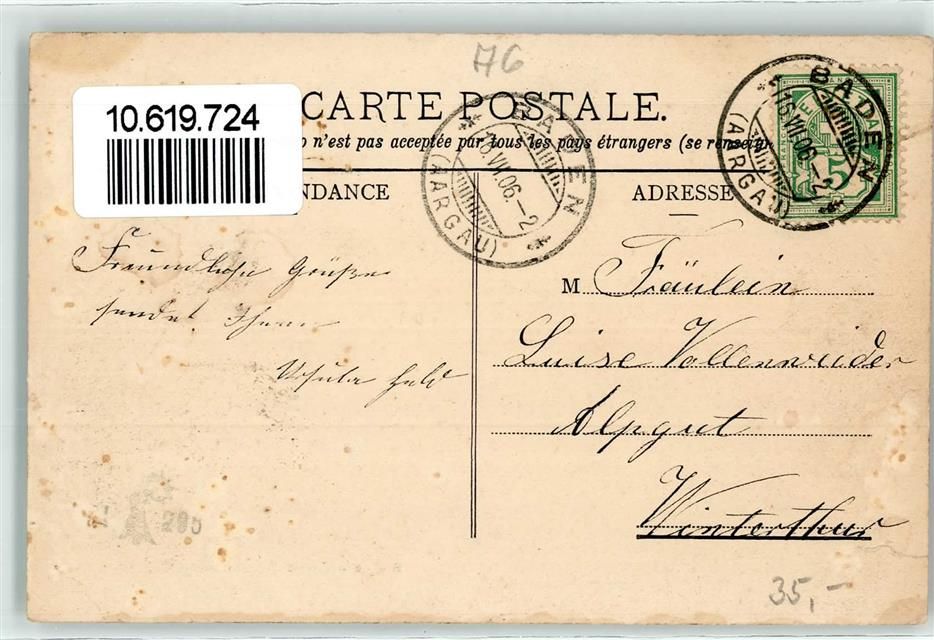 A6
10.619.724
CARTE POSTALE.
n'est pas acceptée par tous les pays étrangers (se renseign
NDANCE
ADRESSE
BADEN
16.VII.06.-2
(AARGAU)
BADEN
16.VII.06.-2
(AARGAU)
5
Freundliche Grüße
sendet Ihnen
Ursula Held
M Fräulein
Luise Vollenweider
Alpgut
Winterthur
205
35,-